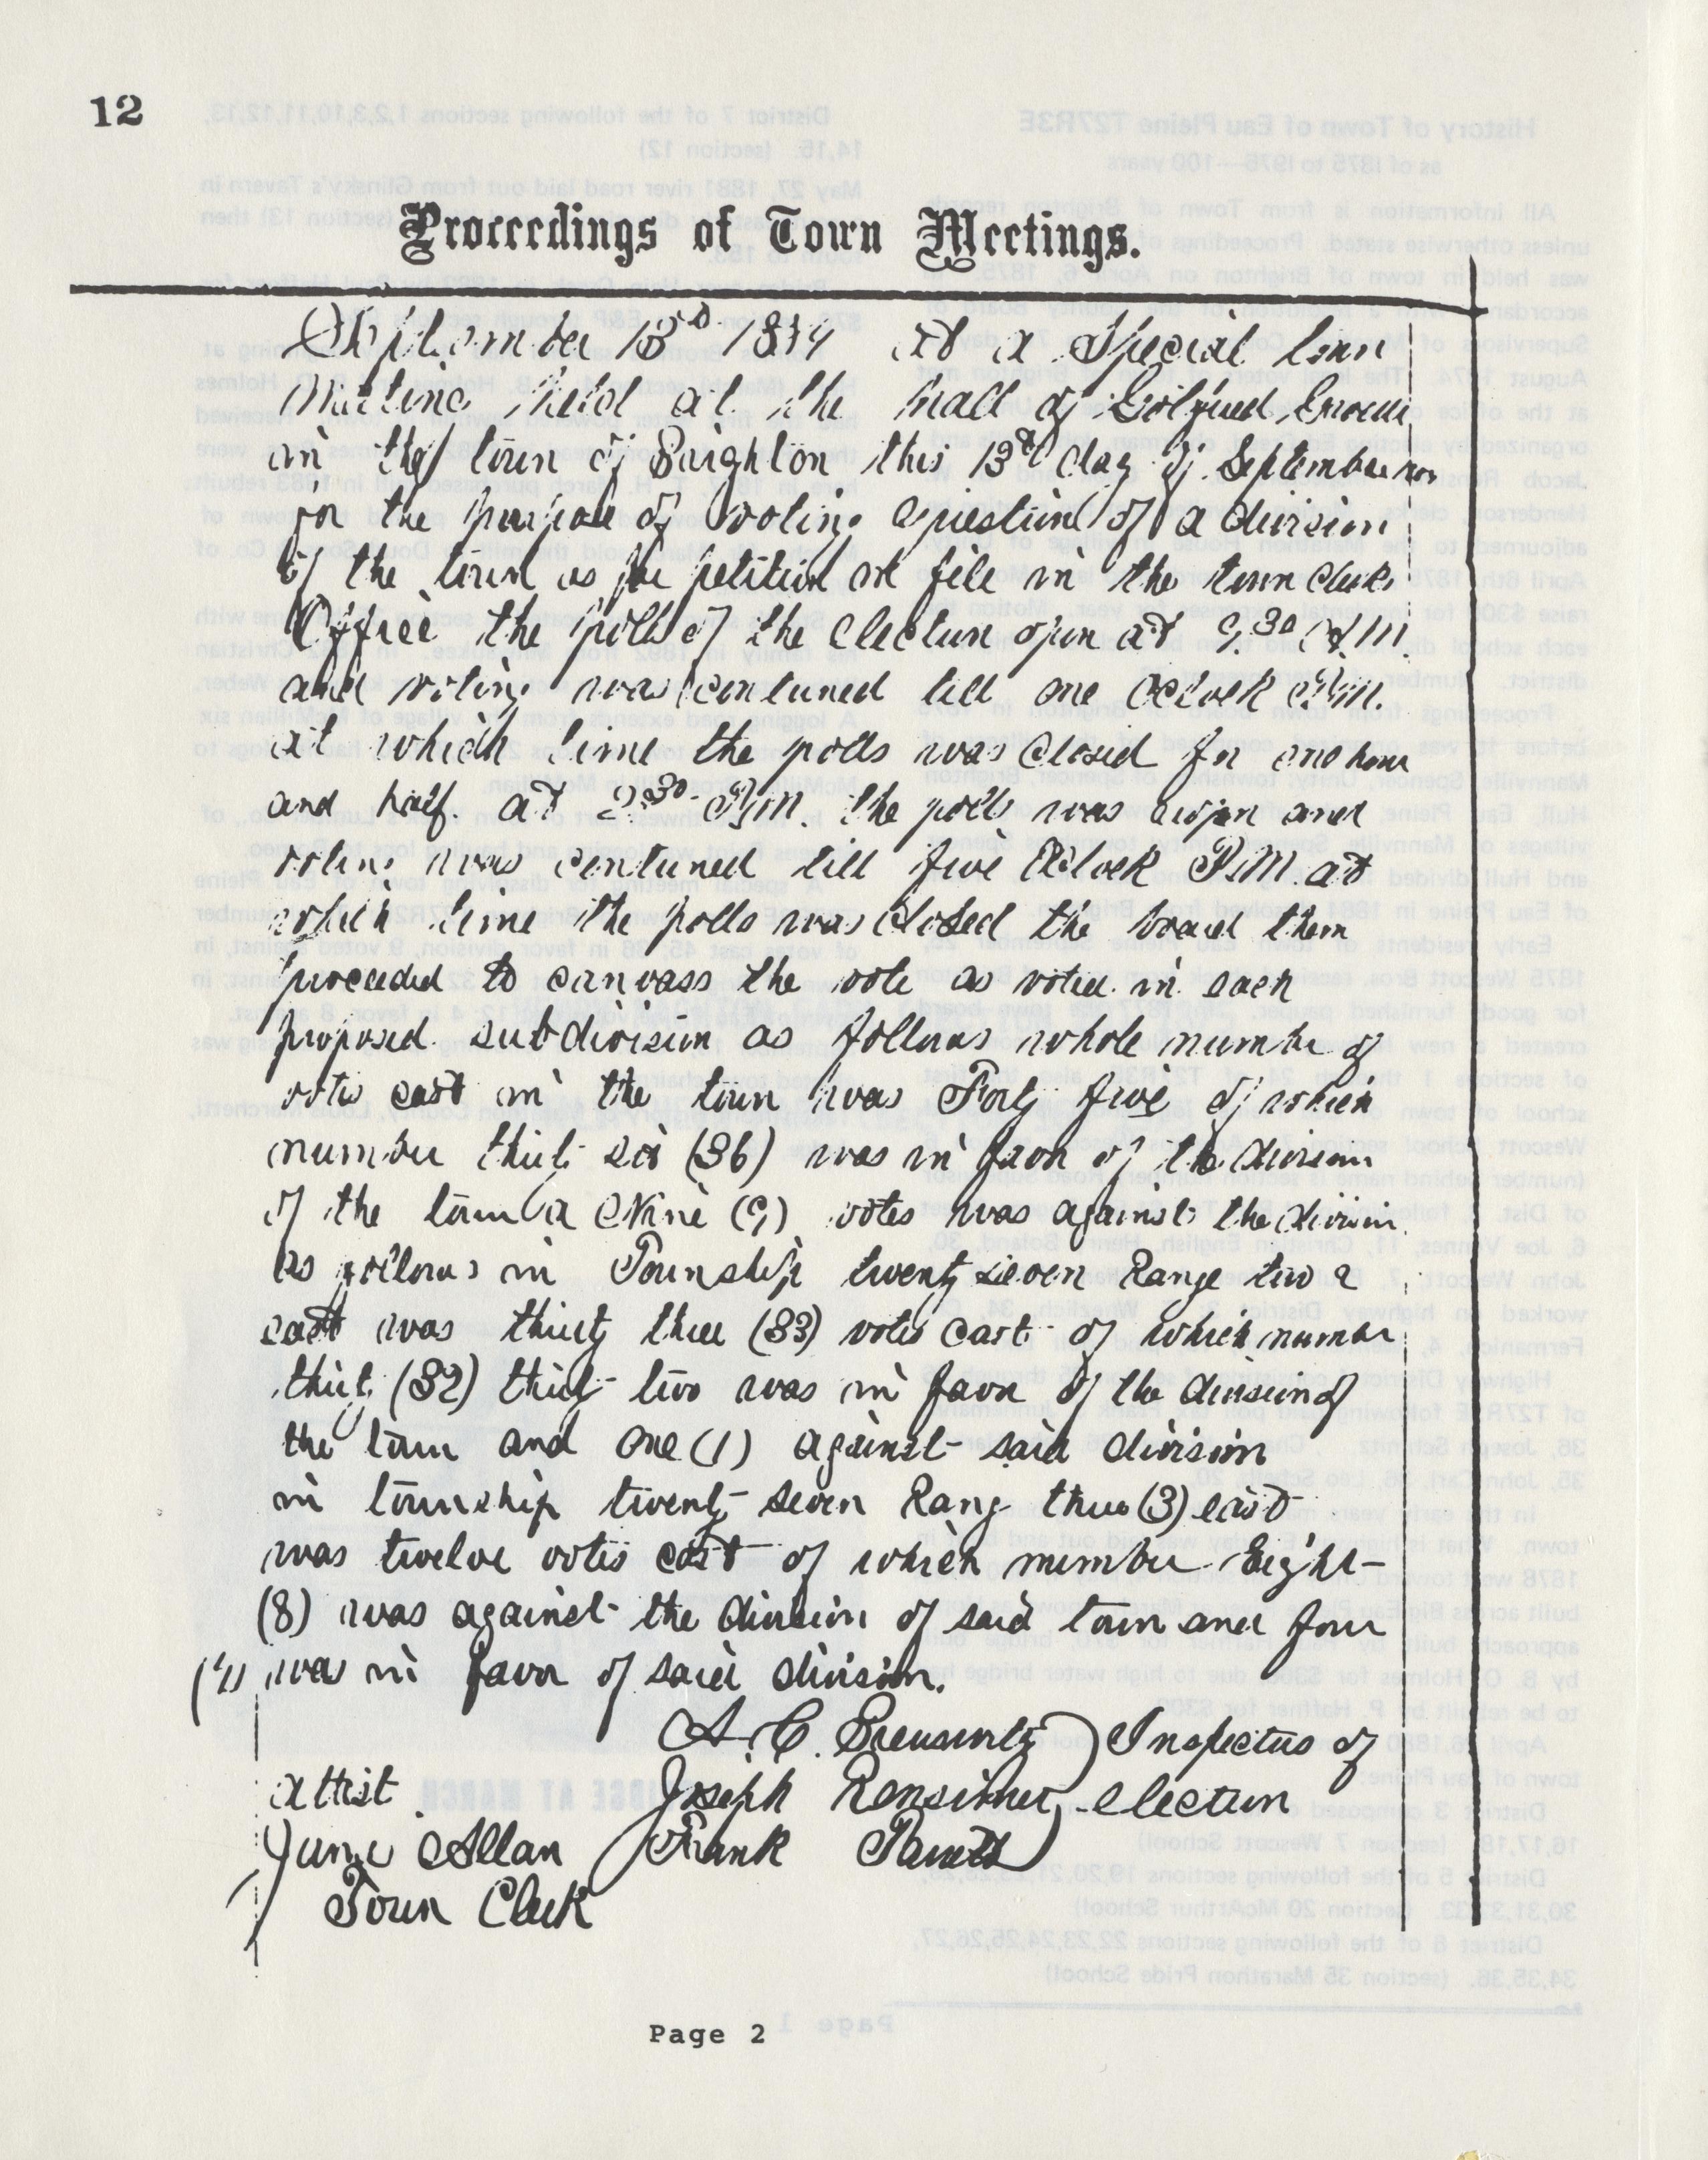 12
Proceedings of Town Meetings.
September 13th at a Special town
Meeting held at the hall of
in the town of Brighton this 13th day of September
for the purpose of voting Question of a division
of the town as per petition on file in the town clerks
Office the polls of the Election open at 9.30 A.M.
and voting was contuned till one Oclock P.M.
at which time the polls was Closed for one hour
and half. at 2.30 P.M. the polls was and
voting was contuned till five Oclock P.M. at
which time the polls was Closed the board them
proceeded to canvass the vote as voted in each
proposed subdivision as follows whole number of
votes cast in the town was Forty five of which
number thirty six (36) was in favor of the division
of the town Nine (9) votes was against the division
as follows in Township twenty seven Range two 2
east was thirty three (33) votes cast of which number
thirty (32) thirty two was in favor of the division of
the town and one (1) against said division
in township twenty seven Rang three (3) east
was twelve votes cast of which number Eight
(8) was against the division of said town and four
(4) was in favor of said division.
A. C. Inspectors of
attest Joseph election
Allan Frank
Town Clerk
Page 2